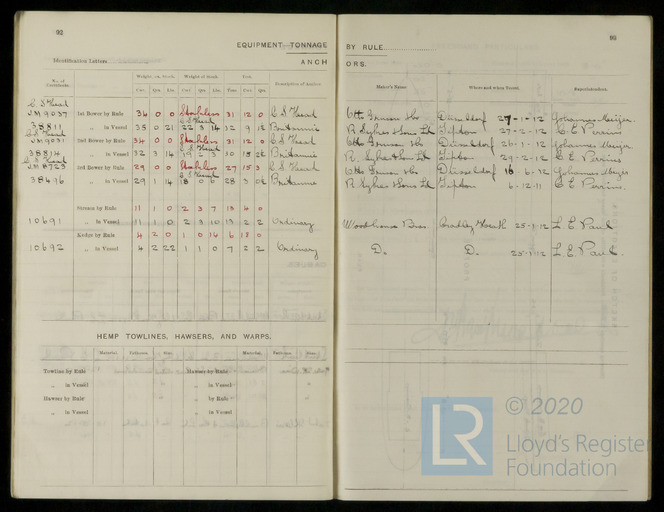 92
EQUIPMENT TONNAGE
Identification Letters
ANCH
No. of Certificate.
Weight, ex. Stock.
Weight of Stock.
Test.
Description of Anchor.
Cwt. Qrs. Lbs. Cwt. Qrs. Lbs. Tons. Cwt. Qrs.
C. S. Head
JM 9037 1st Bower by Rule 34 0 0 Stockless 31 12 0 C S Head
38811 „ in Vessel 35 0 21 22 3 14 32 9 Britannic
C S Head
JM 9031 2nd Bower by Rule 34 0 0 Stockless 31 12 0 C S Head
38814 „ in Vessel 32 3 14 19 2 13 30 15 Britannic
C S Head
JM 8723 3rd Bower by Rule 29 0 0 Stockless 27 15 3 C S Head
38496 „ in Vessel 29 1 14 18 0 6 28 3 Britannic
Stream by Rule 11 1 0 2 3 7 13 4 0
10691 „ in Vessel 11 1 0 2 3 10 13 2 2 Ordinary
Kedge by Rule 4 2 0 1 0 14 6 18 0
10692 „ in Vessel 4 2 22 1 1 0 7 2 2 Ordinary
HEMP TOWLINES, HAWSERS, AND WARPS.
Material. Fathoms. Size. Material. Fathoms. Size.
Towlines by Rule Hawser by Rule
„ in Vessel „ in Vessel
Hawsers by Rule „ by Rule
„ in Vessel „ in Vessel
93
BY RULE
ORS.
Maker's Name.
Where and when Tested.
Superintendent.
Otto Gruson &Co Düsseldorf 27-1-12 Johannes Meijer.
R Sykes &Sons Ld Tipton 27-2-12 C E Perrins
Otto Gruson &Co Düsseldorf 26-1-12 Johannes Meijer
R. Sykes &Son Ld Tipton 29-2-12 C E Perrins
Otto Gruson &Co Düsseldorf 16-6-12 Johannes Meijer
R Sykes &Sons Ld Tipton 6-12-11 C E Perrins.
Woodhouse Bros. Cradley Heath 25-1-12 L. E Paul
Do Do 25-1-12 L. E Paul.
LR © 2020
Lloyd's Register
Foundation